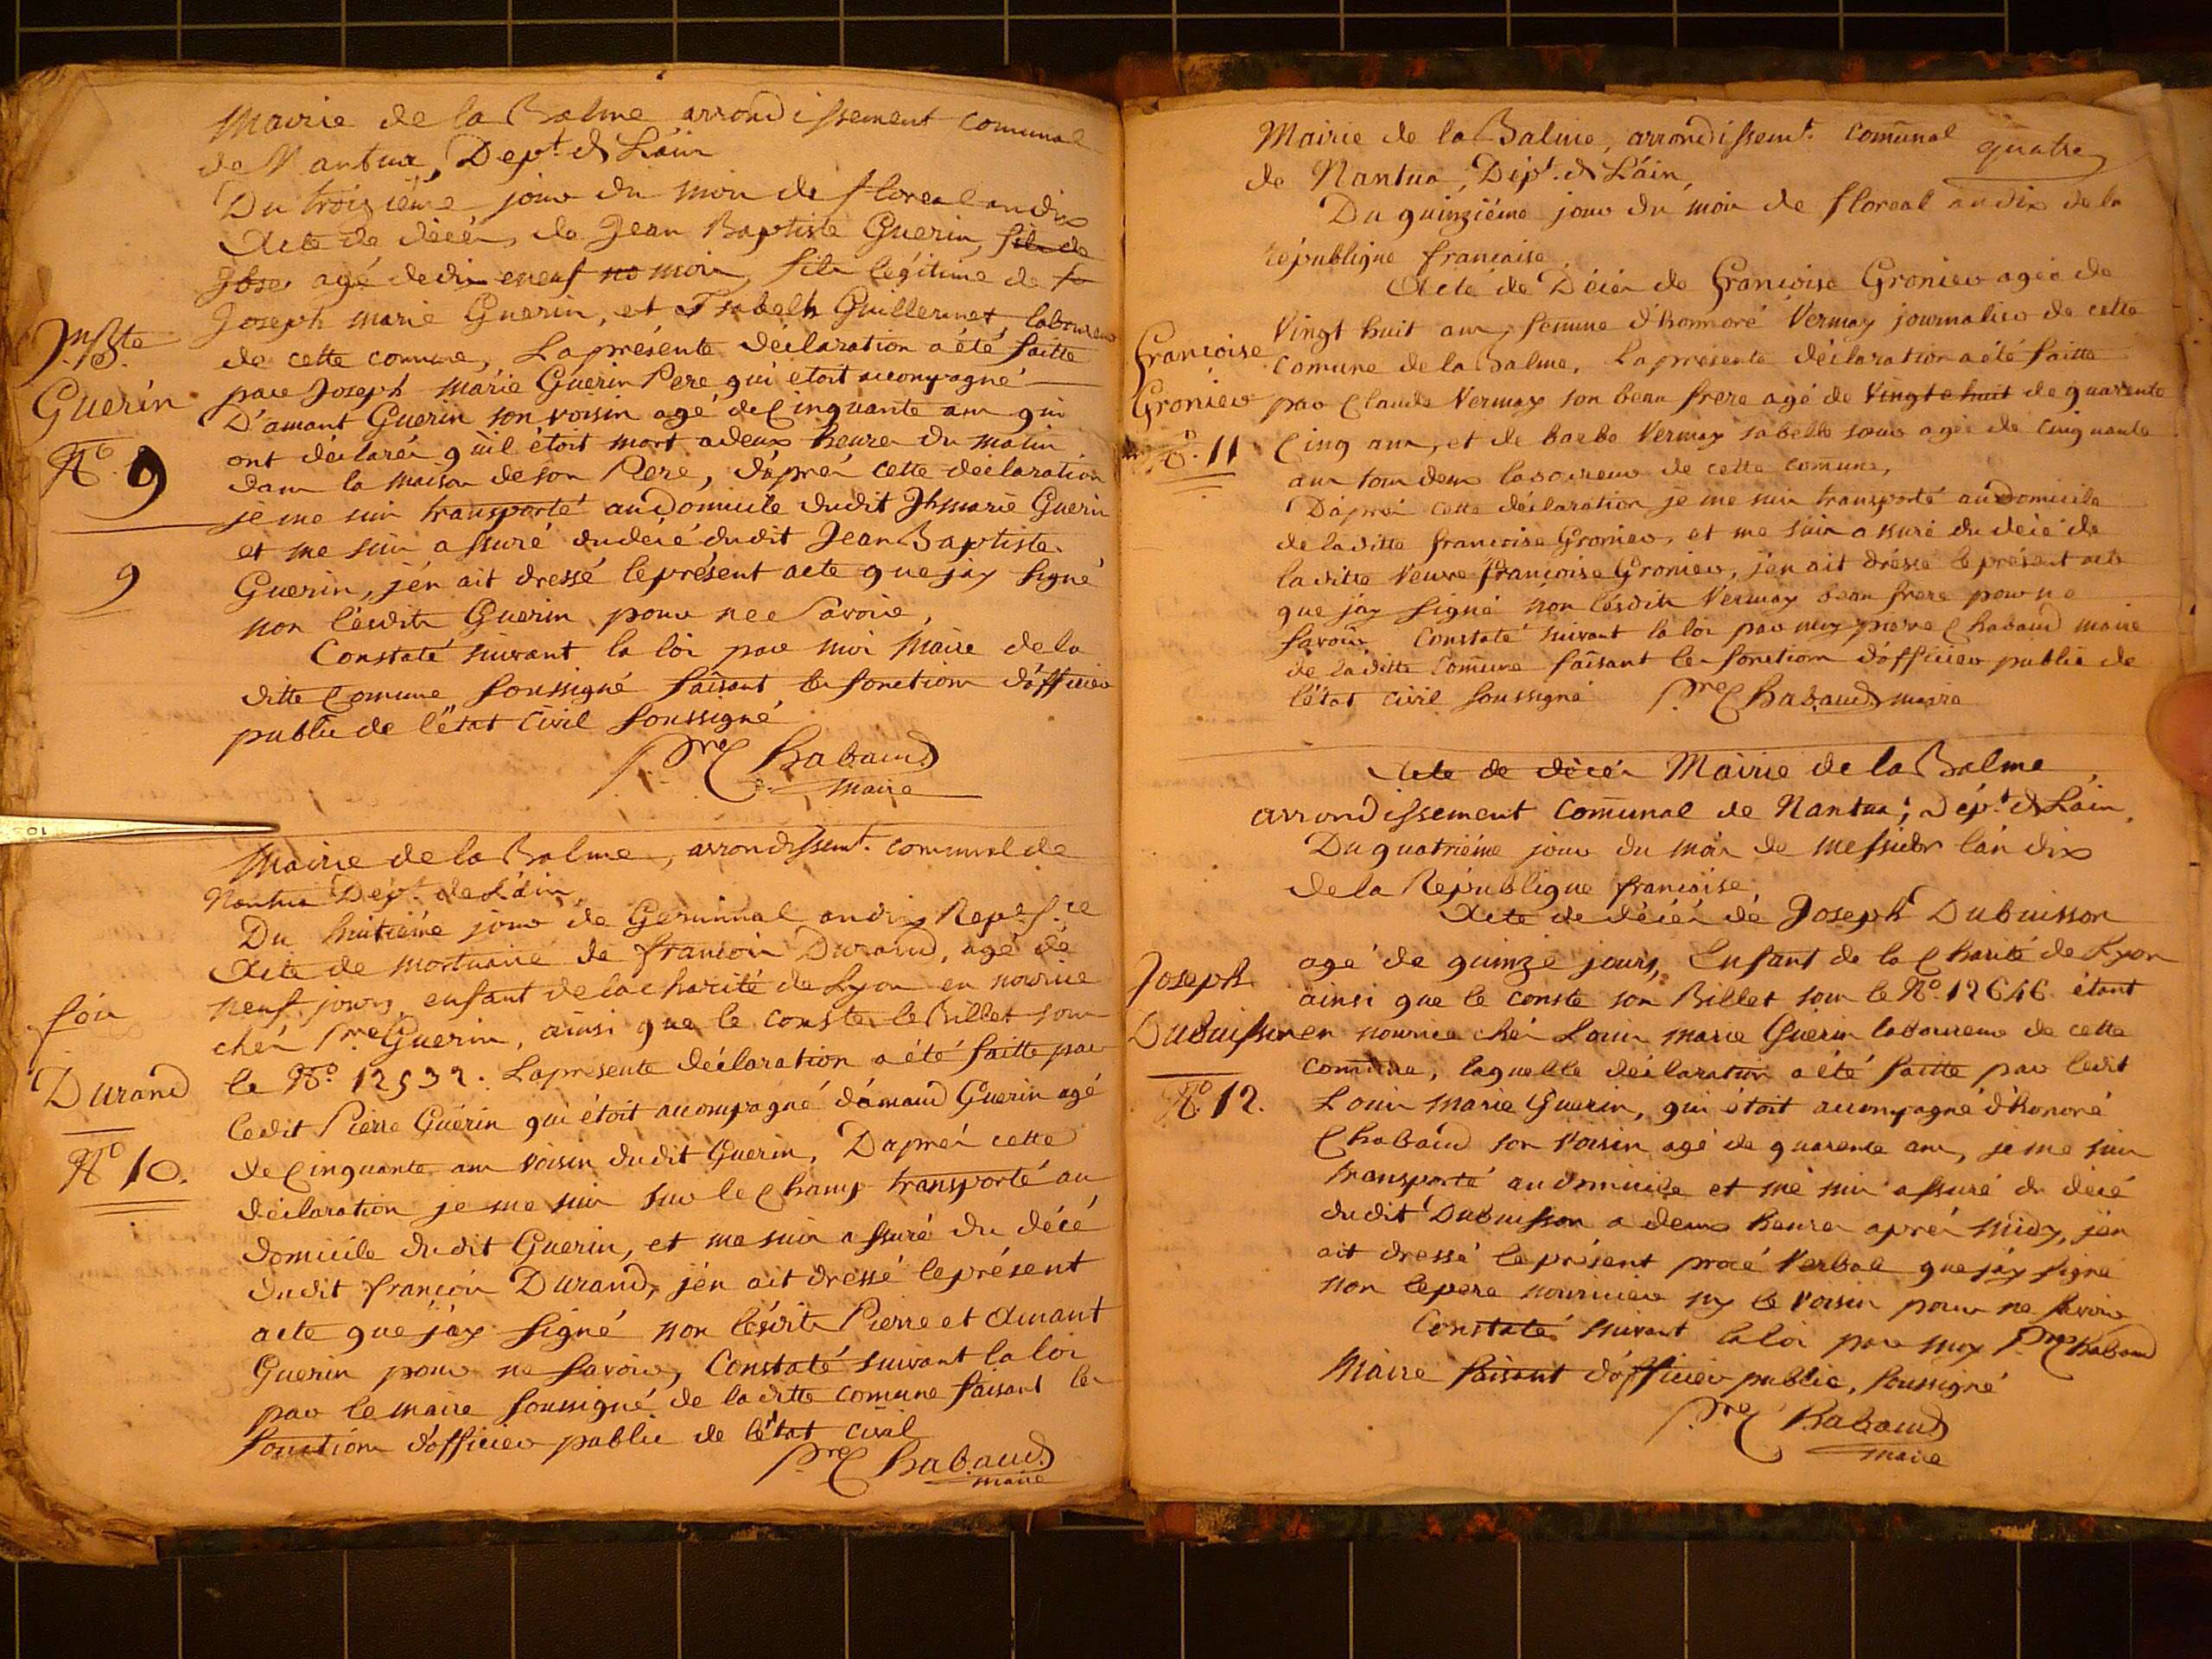 Mairie de la Balme arrondissement comunal
de Nantua, Dept. de L'áin
Du troisiéme jour du mois de floreal an dix
Acte de décés, de Jean Baptiste Guerin, fils de
Jose agé de dix eneuf no mois, fils légitime de fe
Joseph marie Guerin, et Isabelle Guillermet laboureur
de cette comune, La présente déclaration a été faitte
par Joseph marie Guerin Pere qui etoit accompagné
D'amant Guerin son voisin agé de Cinquante ans qui
ont déclarés qu'il étoit mort a deux heures du matin
dans la maison de son Pere, d'aprés cette déclaration
je me suis transporté au Domicile dudit Jh marie Guerin
et me suis assuré du décé dudit Jean Baptiste
Guerin, j'én ait dressé le présent acte que j'ay signé
non lésdits Guerin pour nee Savoir,
Constaté suivant la loi par moi Maire de la
ditte Comune soussigné faisant les fonctions d'officier
public de l'état Civil soussigné
Pre Chabaud
maire
Jn Bte
Guerin
No. 9
9
Mairie de la Balme, arrondissemt. comunal de
Nantua Dept. de L'áin,
Du huitiéme jour de Germinal an dix Repe. f.ce
Acte de mortuaire de francois Durand, agé de
neuf jours enfant de la charité de Lyon en nourice
chés Pre Guerin, ainsi que le conste le Billet sous
le No. 12532. La présente déclaration a été faitte par
ledit Pierre Guerin qui étoit accompagné d'ámand Guerin agé
de Cinquante ans voisin dudit Guerin, D'aprés cette
déclaration je me suis sur le Champ transporté au
domicile dudit Guerin, et me suis assuré du décé
dudit francois Durand, j'én ait dressé le présent
acte que j'ay signé non lésdits Pierre et Amant
Guerin pour ne savoir, Constaté suivant la loi
par le maire soussigné de la ditte comune faisant les
fonctions d'officier public de l'état civil
Pre Chabaud
maire
fois
Durand
No 10.
quatre
Mairie de la Balme, arrondissemt. comunal
de Nantua, Dépt. de L'áin,
Du quinziéme jour du mois de floreal an dix de la
république francaise,
Acte de Décés de francoise Gronier agée de
Vingt huit ans, femme d'honnoré Vermay journalier de cette
Comune de la Balme, La présente déclaration a été faitte
par Claude Vermay son beau frere agé de Vingt e huit de quarente
Cinq ans, et de barbe Vermay sa belle sœur agée de Cinquante
ans tous deux laboureurs de cette comune,
D'aprés cette déclaration je me suis transporté au Domicile
de la ditte francoise Gronier, et me suis assuré du décé de
la ditte Veuve francoise Gronier, j'en ait dréssé le présent acte
que j'ay signé non lésdits Vermay beau frere pour ne
savoir, Constaté suivant la loi par moy pierre Chabaud maire
de la ditte Comune faisant les fonctions d'officier public de
l'état civil soussigné Pre Chabaud maire
francoise
Gronier
No. 11
Acte de décés Mairie de la Balme
arrondissement Comunal de Nantua, Dépt. de L'áin,
Du quatriéme jour du mois de messidor l'án dix
de la République francaise,
Acte de décés de Joseph Dubuisson
agé de quinze jours, Enfant de la Charité de Lyon
ainsi que le conste son Billet sous le No. 12646 étant
en nourice chés Louis marie Guerin laboureur de cette
comune, laquelle déclaration a été faitte par ledit
Louis Marie Guerin, qui étoit accompagné d'honoré
Chabaud son Voisin agé de quarente ans, je me suis
transporté au domicile et me suis assuré du décé
dudit Dubuisson a deux heures aprés midy, j'én
ait dressé le présent procé Verbal que j'ay signé
non le pere nourricier ny le voisin pour ne savoir
Constaté suivant la loi par moy Pre Chabaud
Maire faisant d'officier public, soussigné
Pre Chabaud
maire
Joseph
Dubuisson
No. 12.